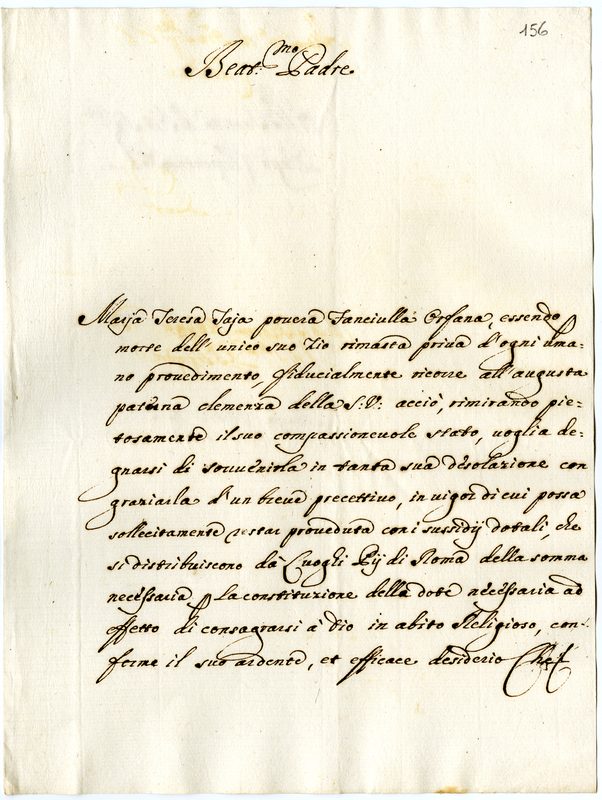 156
Beat.mo Padre
Maria Teresa Taja povera Fanciulla Orfana, essendo
morte dell' unico suo Zio rimasta priva d'ogni uma=
no provedimento, fiducialmente ricorre all'augusta
paterna clemenza della S:V: acciò, rimirando pie=
tosamente il suo compassionevole stato, voglia de=
gnarsi di sovvenirla in tanta sua desolazione con
graziarla d'un breve precettivo, in vigor di cui possa
sollecitamente restar proveduta con i sussidij dotali, che
si distribuiscono da Luoghi Pij di Roma della somma
necessaria p la constituzione della dote necessaria ad
effetto di consagrarsi à Dio in abito Religioso, con=
forme il suo ardente, et efficace desiderio Che